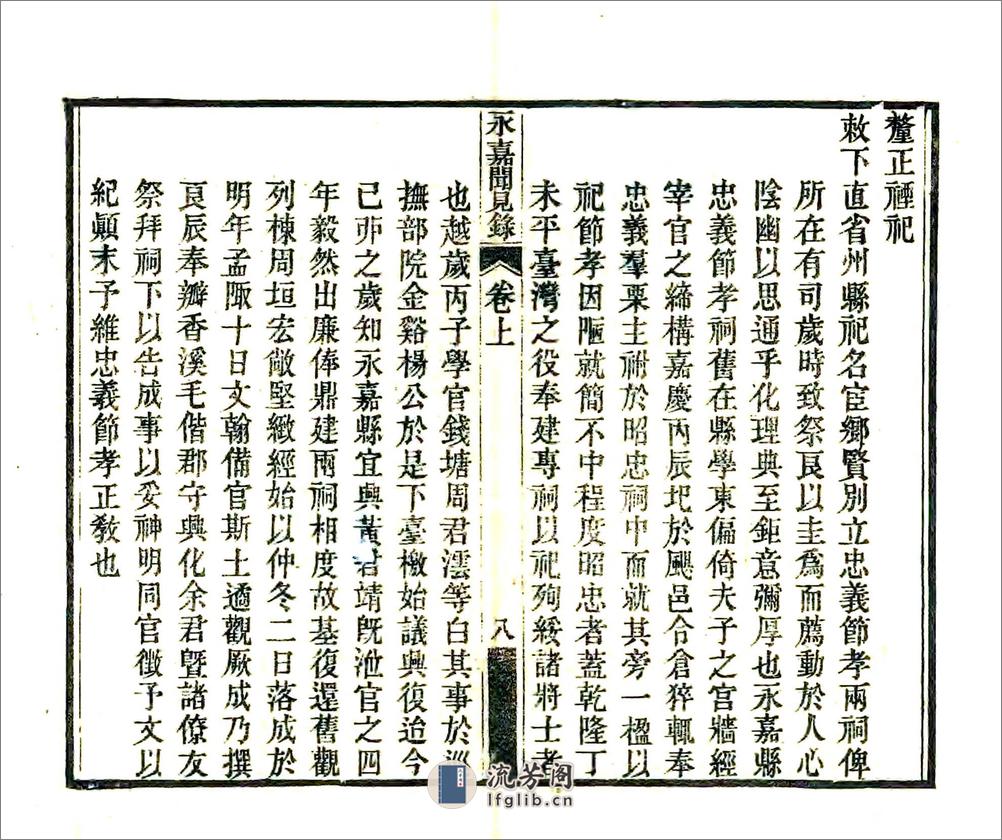 釐正禋祀
敕下直省州縣祀名宦鄉賢別立忠義節孝兩祠俾
所在有司歲時致祭㫐以圭爲而薦動於人心
陰幽以思通乎化理典至鉅意彌厚也永嘉縣
忠義節孝祠舊在縣學東偏倚夫子之宫牆經
宰官之締構嘉慶丙辰圯於颶邑令倉猝輒奉
忠義羣栗主祔於昭忠祠中而就其旁一楹以
祀節孝因陋就簡不中程度昭忠者蓋乾隆丁
未平臺灣之役奉建專祠以祀殉綏諸將士者
永嘉聞見錄
卷上
八
也越歲丙子學官錢塘周君澐等白其事於巡
撫部院金谿楊公於是下臺檄始議興復迨今
已夘之歲知永嘉縣宜興黃君靖旣泄官之四
年毅然出廉俸鼎建兩祠相度故基復還舊觀
列棟周垣宏敞堅緻經始以仲冬二日落成於
明年孟陬十日文翰備官斯土適觀厥成乃撰
㫐辰奉瓣香溪毛偕郡守興化余君曁諸僚友
祭拜祠下以告成事以妥神明同官徵予文以
紀顚末予維忠義節孝正敎也
流芳阁
lfglib.cn